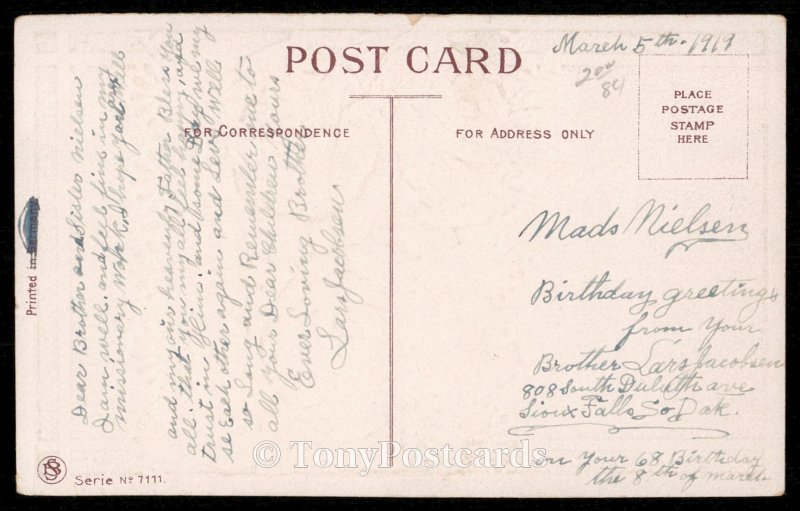 March 5th. 1919
200
84
POST CARD
FOR CORRESPONDENCE
FOR ADDRESS ONLY
PLACE
POSTAGE
STAMP
HERE
Dear Brother and Sister Nielsen
I am well and feel fine in my
missionary Work & I hope you are well
and may our heavenly Father Bless you
all that you may all feel happy and
trust in Him and some Day we may
se Each other again and Levy Well
so Long and Remember me to
all your Dear Children yours
Ever Loving Brother
Lars Jacobsen
Mads Nielsen
Birthday greetings
from Your
Brother Lars Jacobsen
808 South Duluth ave
Sioux Falls So Dak.
on Your 68 Birthday
the 8th of march
Printed in Germany
BS
Serie Nº 7111.
© TonyPostcards